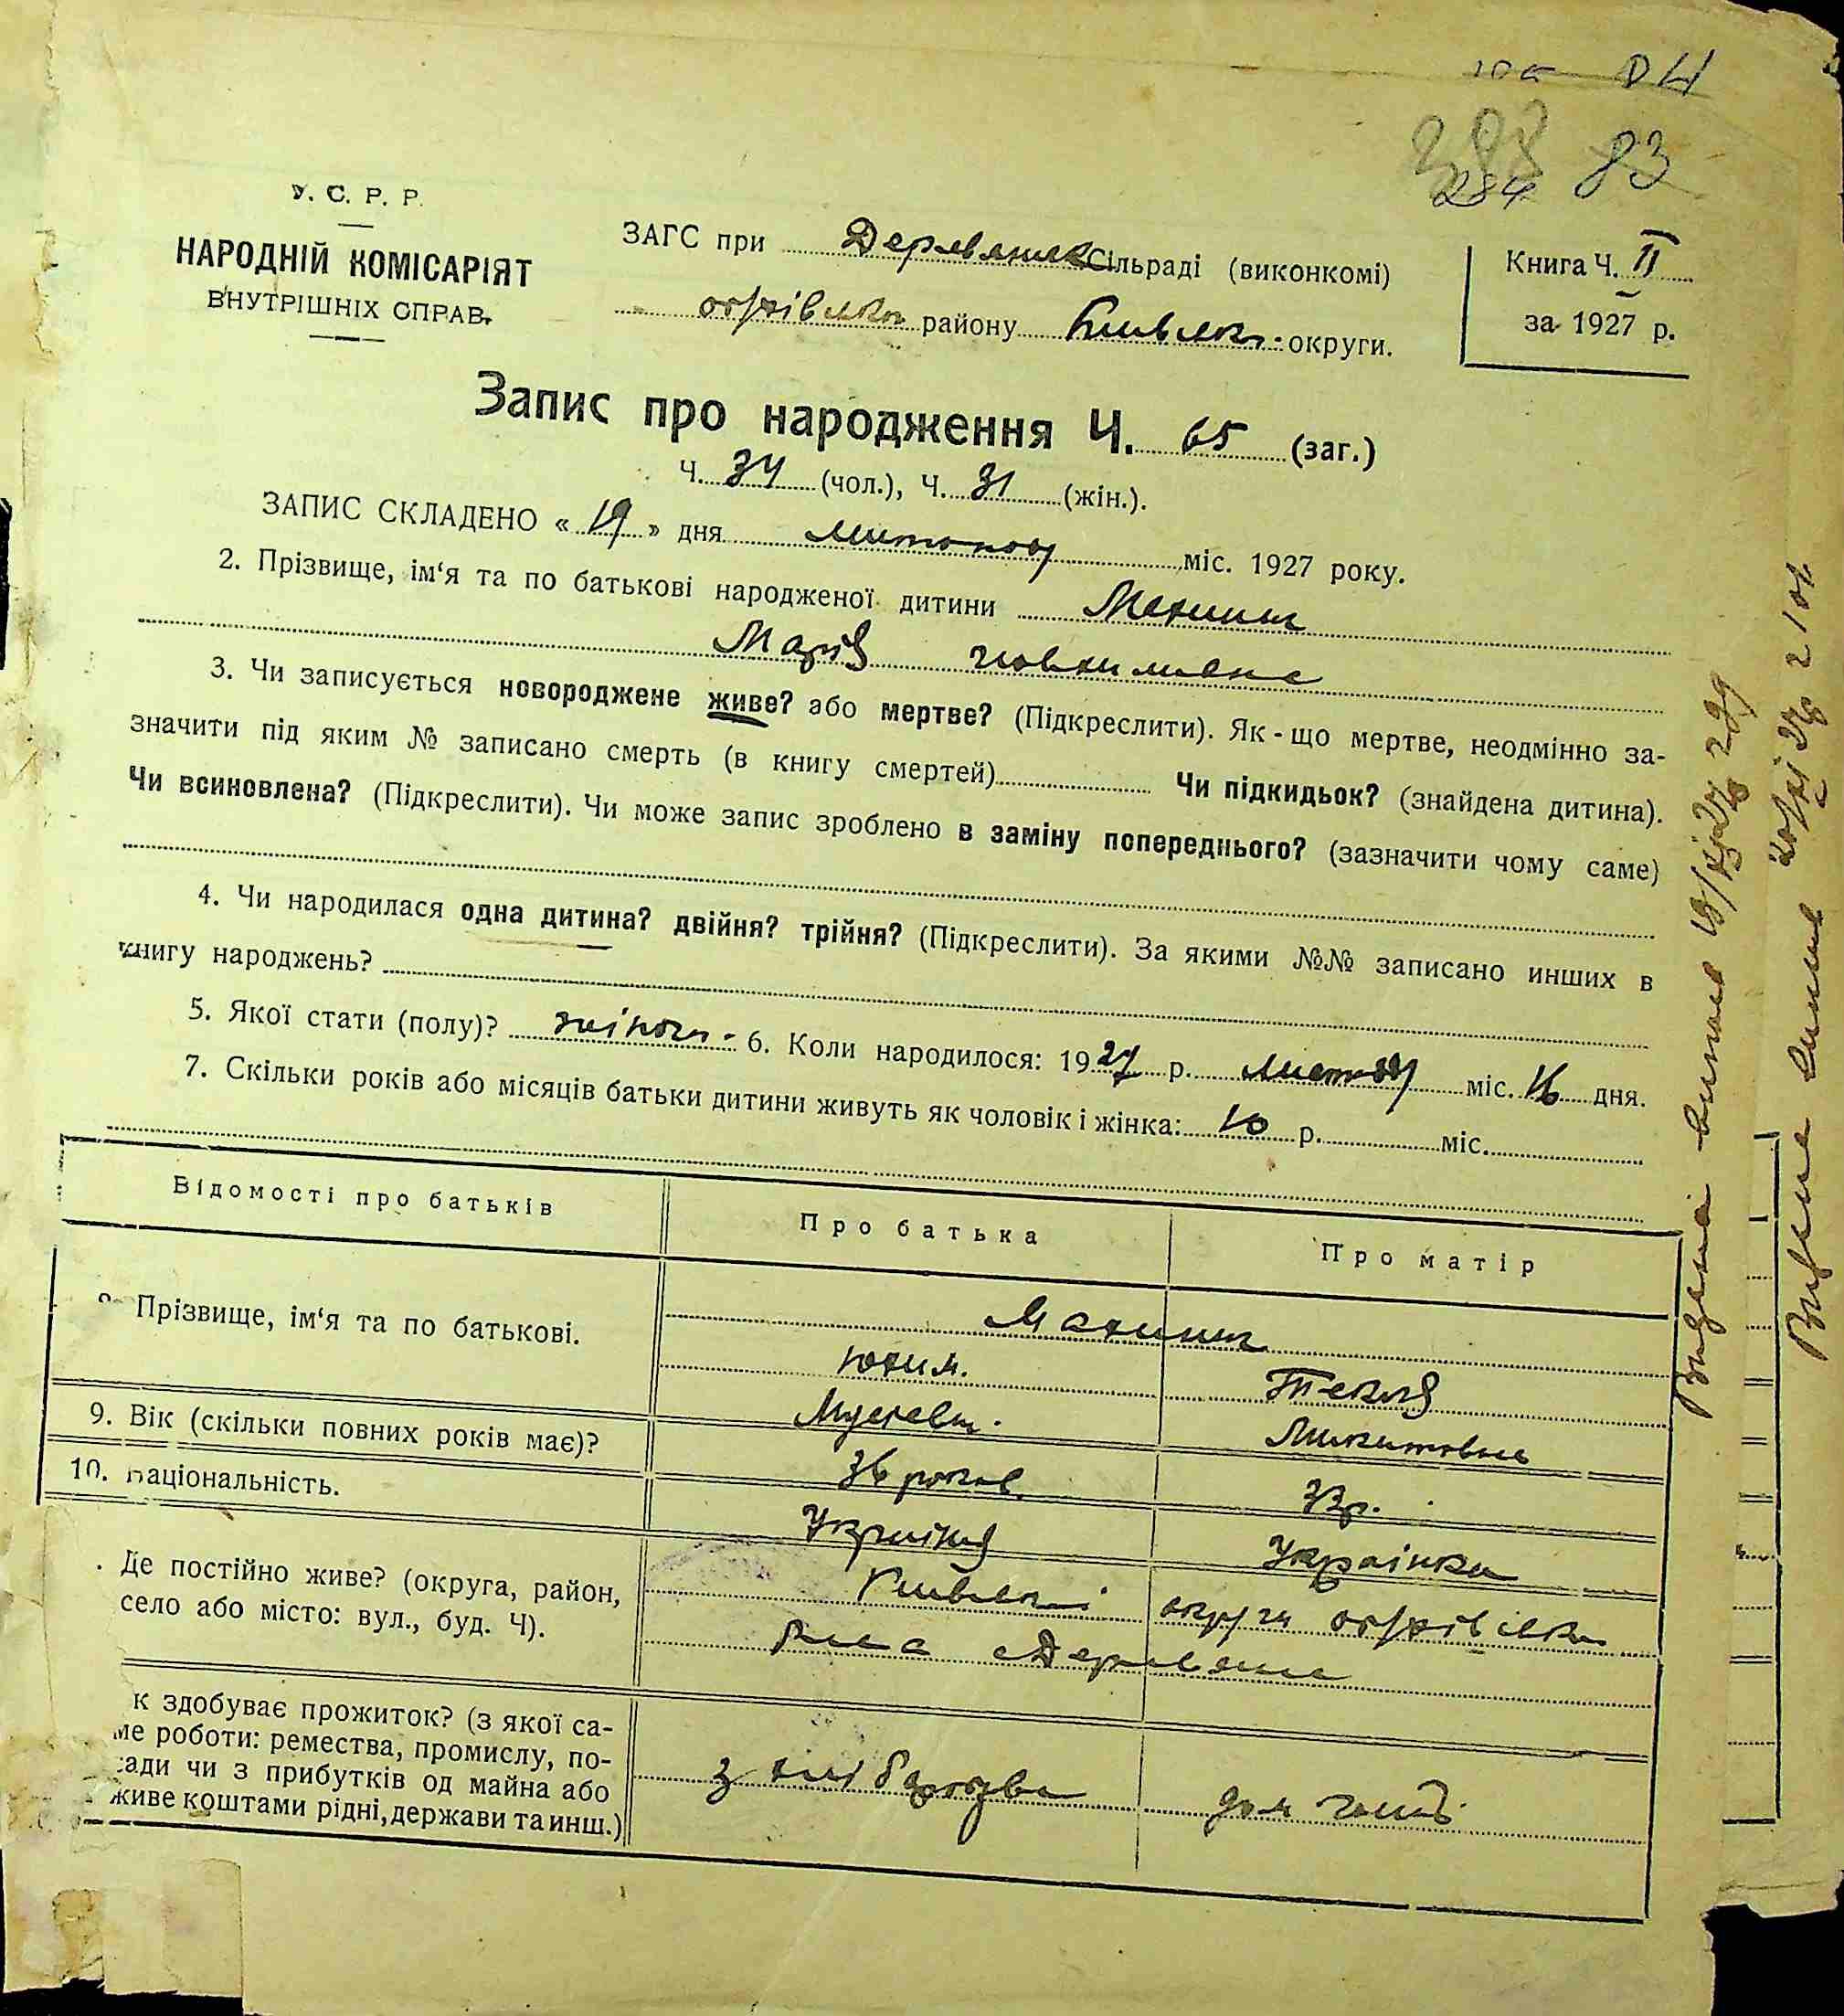 284 83
У. С. Р. Р.
НАРОДНІЙ КОМІСАРІЯТ
ВНУТРІШНІХ СПРАВ.
ЗАГС при Деревянск Сільраді (виконкомі)
обухівськ району Київськ. округи.
Книга Ч. II
за 1927 р.
Запис про народження Ч. 65 (заг.)
Ч. 34 (чол.), Ч. 31 (жін.).
ЗАПИС СКЛАДЕНО « 19 » дня листопаду міс. 1927 року.
2. Прізвище, ім‘я та по батькові народженої дитини Махиня
Марія Юхимівна
3. Чи записується новороджене живе? або мертве? (Підкреслити). Як-що мертве, неодмінно за-
значити під яким № записано смерть (в книгу смертей) Чи підкидьок? (знайдена дитина).
Чи всиновлена? (Підкреслити). Чи може запис зроблено в заміну попереднього? (зазначити чому саме)
4. Чи народилася одна дитина? двійня? трійня? (Підкреслити). За якими №№ записано инших в
книгу народжень?
5. Якої стати (полу)? жіноч. 6. Коли народилося: 1927 р. листопаду міс. 16 дня.
7. Скільки років або місяців батьки дитини живуть як чоловік і жінка: 10 р. міс.
Відомості про батьків Про батька Про матір
Прізвище, ім‘я та по батькові. Махиня
Юхим. Текля
Мусієви. Микитовна
9. Вік (скільки повних років має)? 36 років. 32 р.
10. Національність. Україне Українка
Де постійно живе? (округа, район,
село або місто: вул., буд. Ч).
Київської округи обухівськ
р-на с Деревяна
к здобуває прожиток? (з якої са-
ме роботи: ремества, промислу, по-
сади чи з прибутків од майна або
живе коштами рідні, держави та инш.)
з хліборобства дом госп.
Видана виписка
Видана виписка